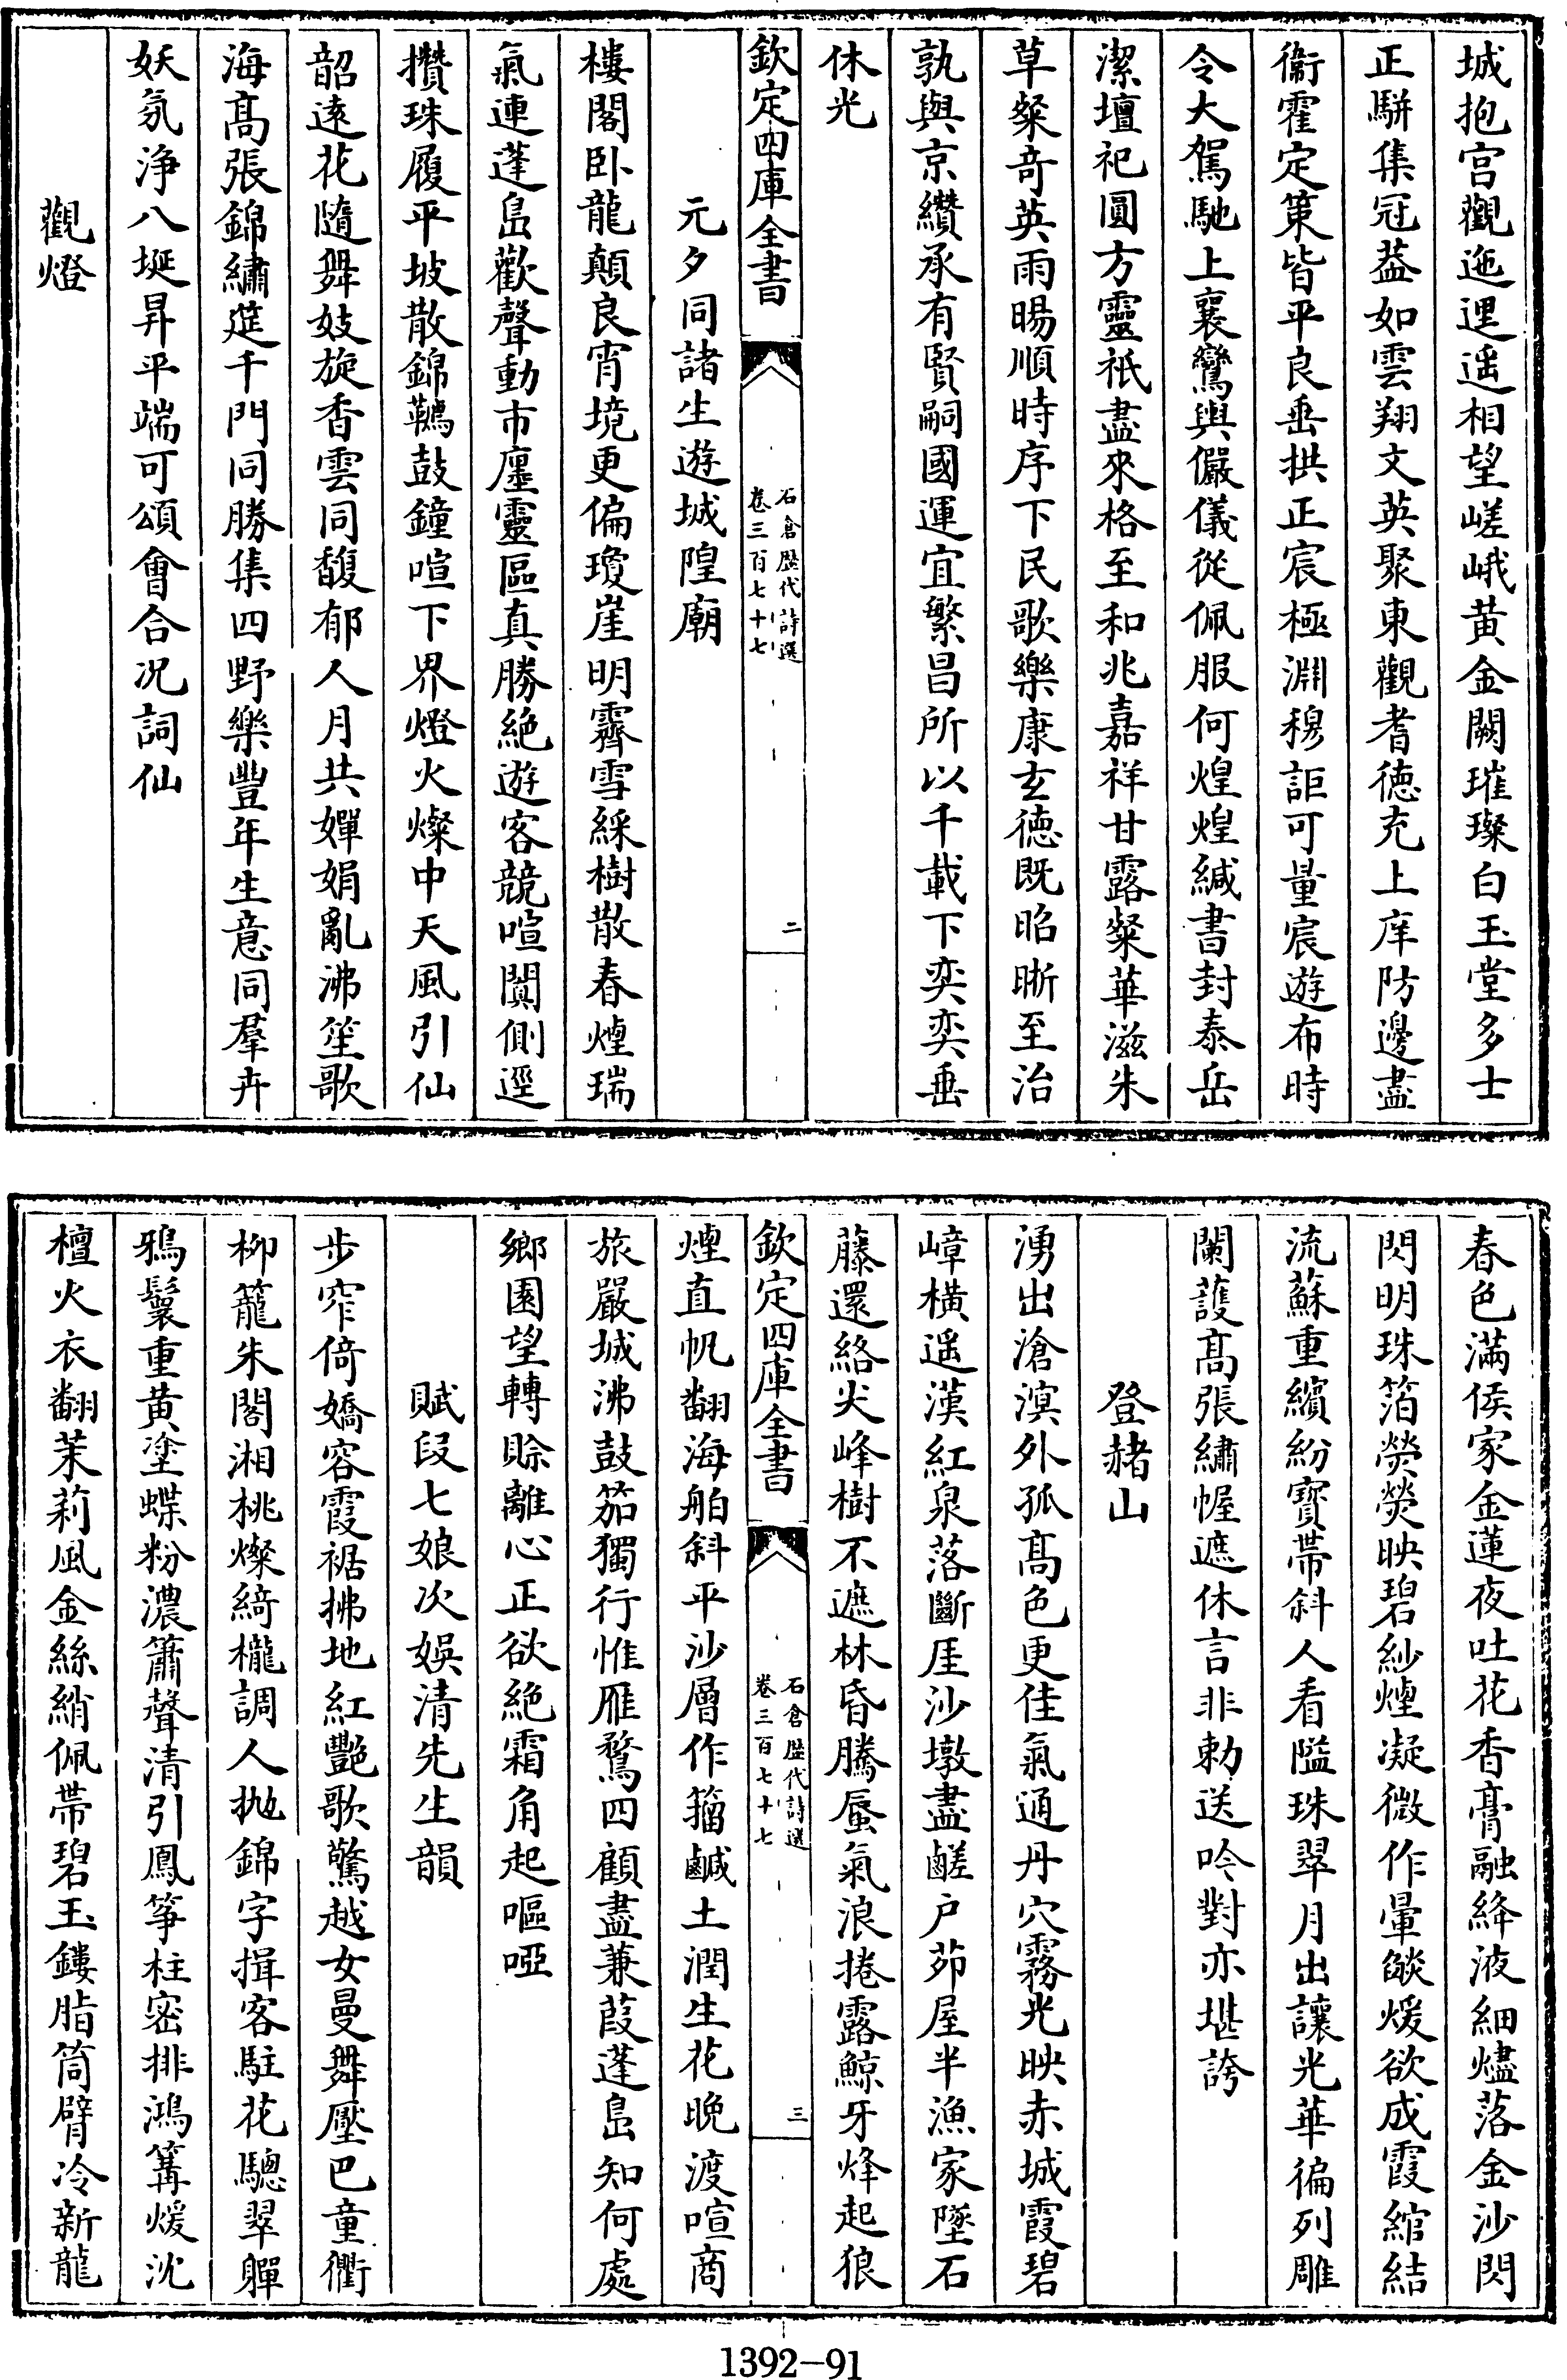 城抱宫觀迤邐遥相望嵯峨黄金闕璀璨白玉堂多士
正駢集冠葢如雲翔文英聚東觀耆徳充上庠防邊盡
衞霍定策皆平良垂拱正宸極淵穆詎可量宸遊布時
令大駕馳上襄鸞輿儼儀從佩服何煌煌緘書封泰岳
潔壇祀圓方靈祇盡來格至和兆嘉祥甘露粲華滋朱
草粲奇英雨暘順時序下民歌樂康玄徳既昭晣至治
孰與京纘承有賢嗣國運宜繁昌所以千載下奕奕垂
休光
欽定四庫全書
石倉歴代詩選
卷三百七十七
二
元夕同諸生遊城隍廟
樓閣卧龍顛良宵境更偏瓊崖明霽雪綵樹散春煙瑞
氣連蓬島歡聲動市廛靈區真勝絶遊客競喧闐側逕
攢珠履平坡散錦韉鼓鐘喧下界燈火燦中天風引仙
韶逺花隨舞妓旋香雲同馥郁人月共嬋娟亂沸笙歌
海髙張錦繡筵千門同勝集四野樂豐年生意同羣卉
妖氛浄八埏昇平端可頌會合况詞仙
觀燈
春色滿侯家金蓮夜吐花香膏融絳液細燼落金沙閃
閃明珠箔熒熒映碧紗煙凝微作暈燄煖欲成霞綰結
流蘇重繽紛寳帶斜人看隘珠翠月出讓光華徧列雕
闌護髙張繡幄遮休言非勅送吟對亦堪誇
登赭山
湧出滄溟外孤髙色更佳氣通丹穴霧光映赤城霞碧
嶂橫遥漢紅泉落斷厓沙墩盡鹺户茆屋半漁家墜石
藤還絡尖峰樹不遮林昏騰蜃氣浪捲露鯨牙烽起狼
欽定四庫全書
石倉歴代詩選
卷三百七十七
三
煙直帆翻海舶斜平沙層作籀鹹土潤生花晚渡喧商
旅嚴城沸鼓笳獨行惟雁鶩四顧盡蒹葭蓬島知何處
鄉園望轉賒離心正欲絶霜角起嘔啞
賦段七娘次娛清先生韻
步窄倚嬌容霞裾拂地紅艷歌驚越女曼舞壓巴童衢
柳籠朱閣湘桃燦綺櫳調人抛錦字揖客駐花驄翠嚲
鴉鬟重黄塗蝶粉濃簫聲清引鳳筝柱密排鴻篝煖沈
檀火衣翻茉莉風金絲綃佩帶碧玉鏤脂筒臂冷新龍
1392-91